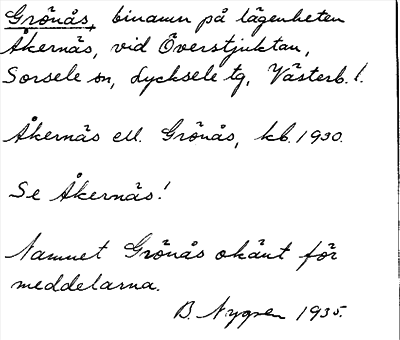 Grönås, binamn på lägenheten
Åkernäs, vid Överstjuktan,
Sorsele sn, Lycksele tg, Västerb. l.
Åkernäs ell. Grönås, kb. 1930.
Se Åkernäs!
Namnet Grönås okänt för
meddelarna.
B. Nygren 1935.